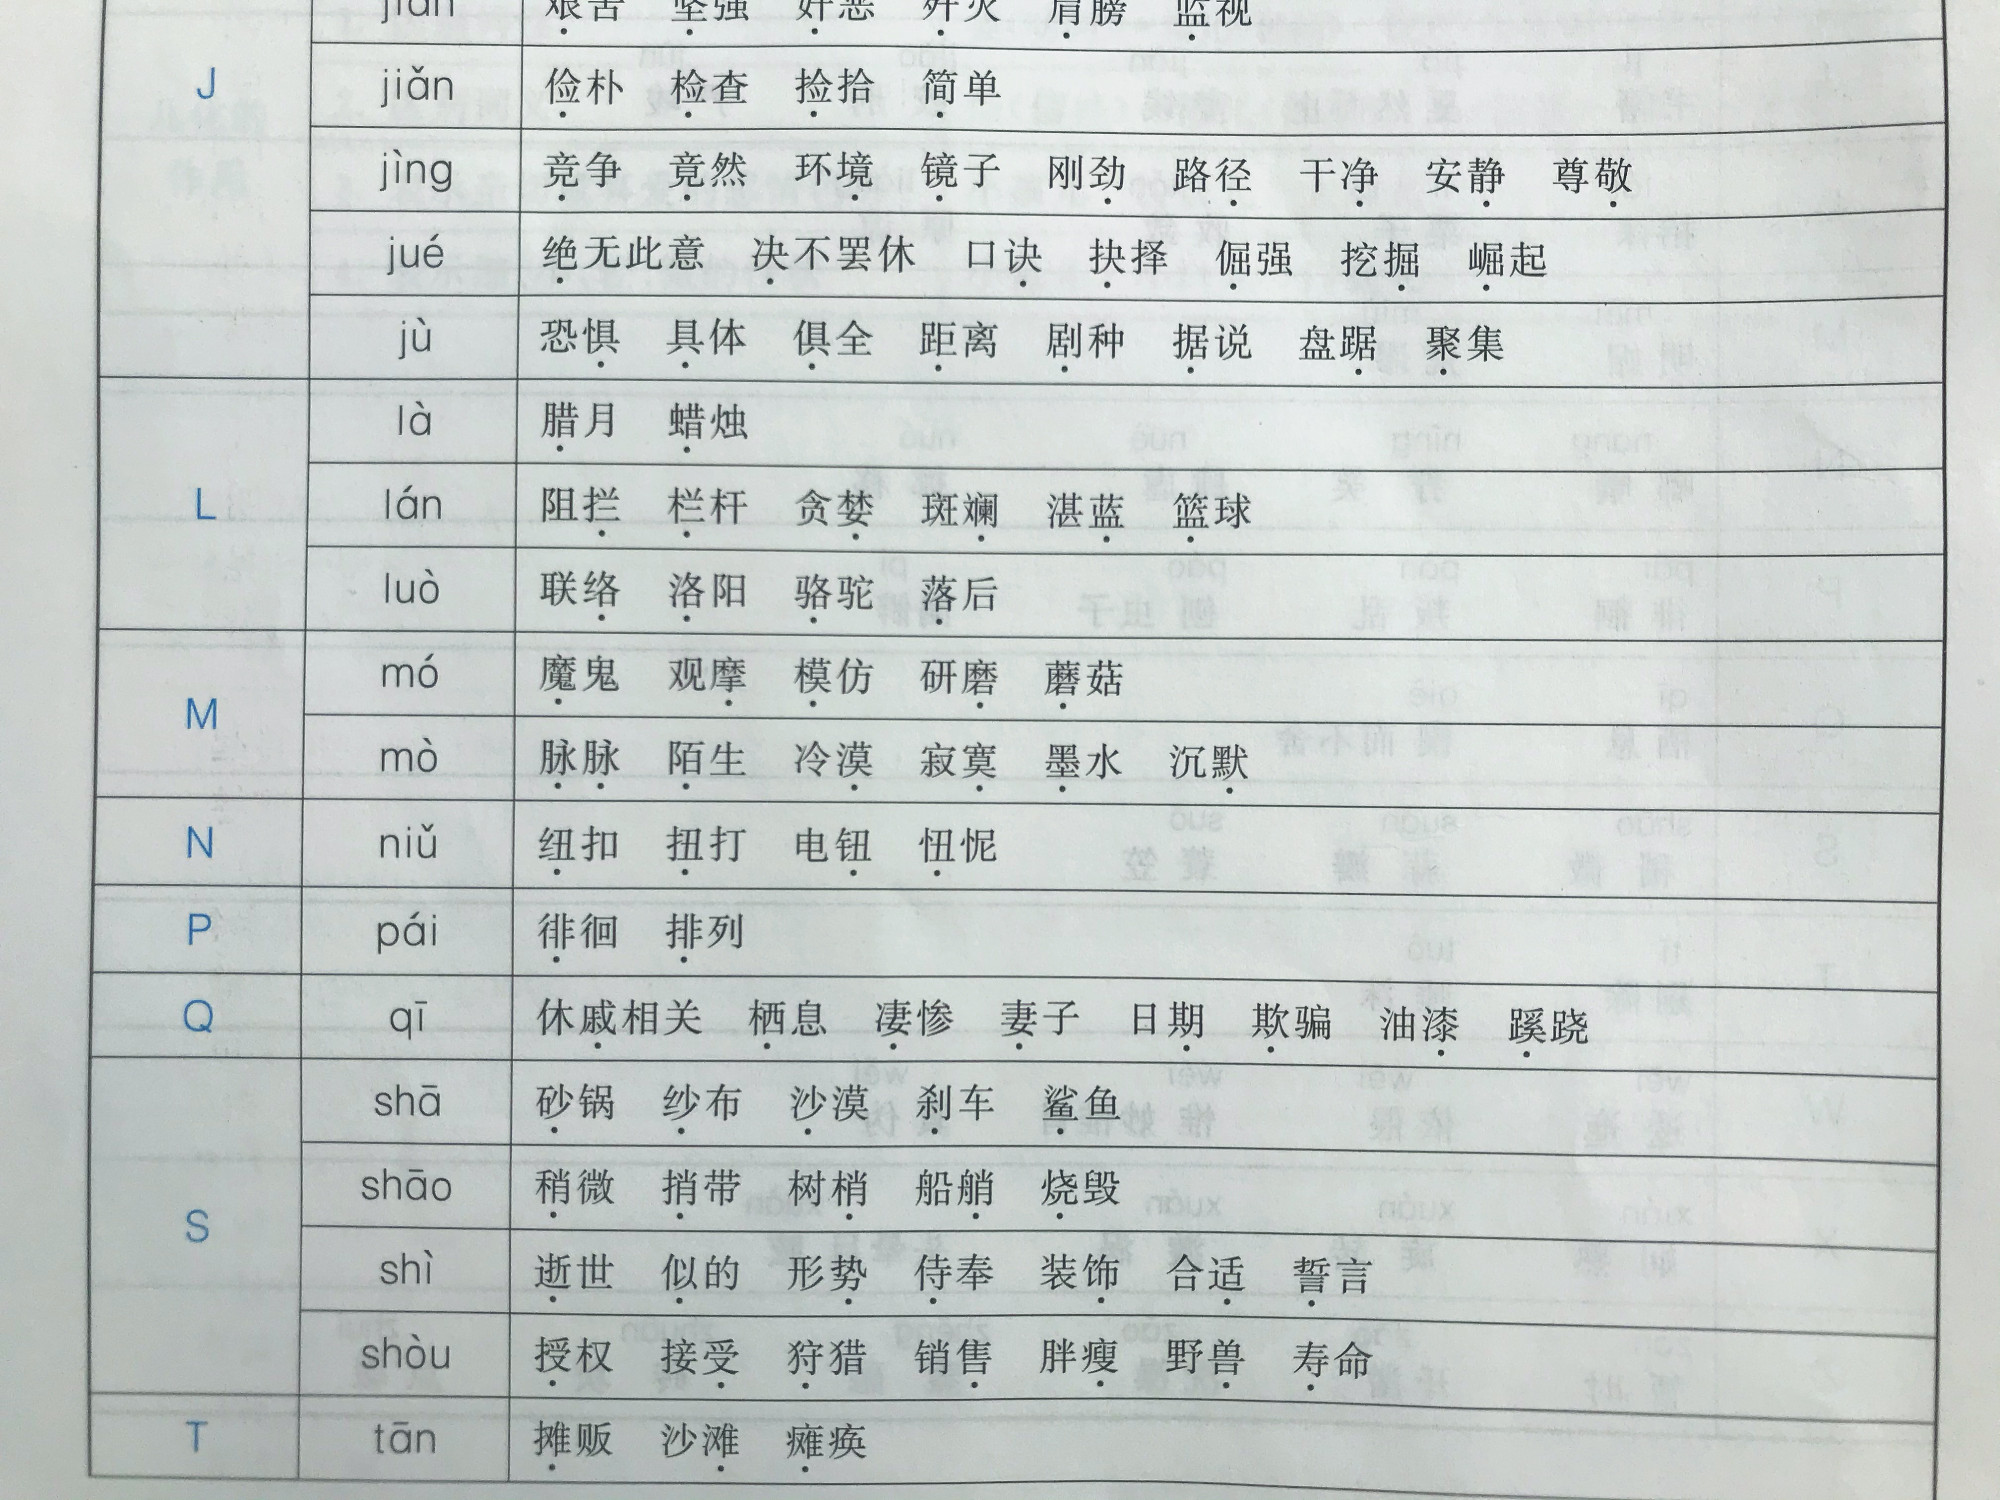 jiān 艰苦 坚强 奸恶 歼灭 肩膀 监视
J jiǎn 俭朴 检查 捡拾 简单
jìng 竞争 竟然 环境 镜子 刚劲 路径 干净 安静 尊敬
jué 绝无此意 决不罢休 口诀 抉择 倔强 挖掘 崛起
jù 恐惧 具体 俱全 距离 剧种 据说 盘踞 聚集
là 腊月 蜡烛
L lán 阻拦 栏杆 贪婪 斑斓 湛蓝 篮球
luò 联络 洛阳 骆驼 落后
M mó 魔鬼 观摩 模仿 研磨 蘑菇
mò 脉脉 陌生 冷漠 寂寞 墨水 沉默
N niǔ 纽扣 扭打 电钮 忸怩
P pái 徘徊 排列
Q qī 休戚相关 栖息 凄惨 妻子 日期 欺骗 油漆 蹊跷
shā 砂锅 纱布 沙漠 刹车 鲨鱼
S shāo 稍微 捎带 树梢 船艄 烧毁
shì 逝世 似的 形势 侍奉 装饰 合适 誓言
shòu 授权 接受 狩猎 销售 胖瘦 野兽 寿命
T tān 摊贩 沙滩 瘫痪